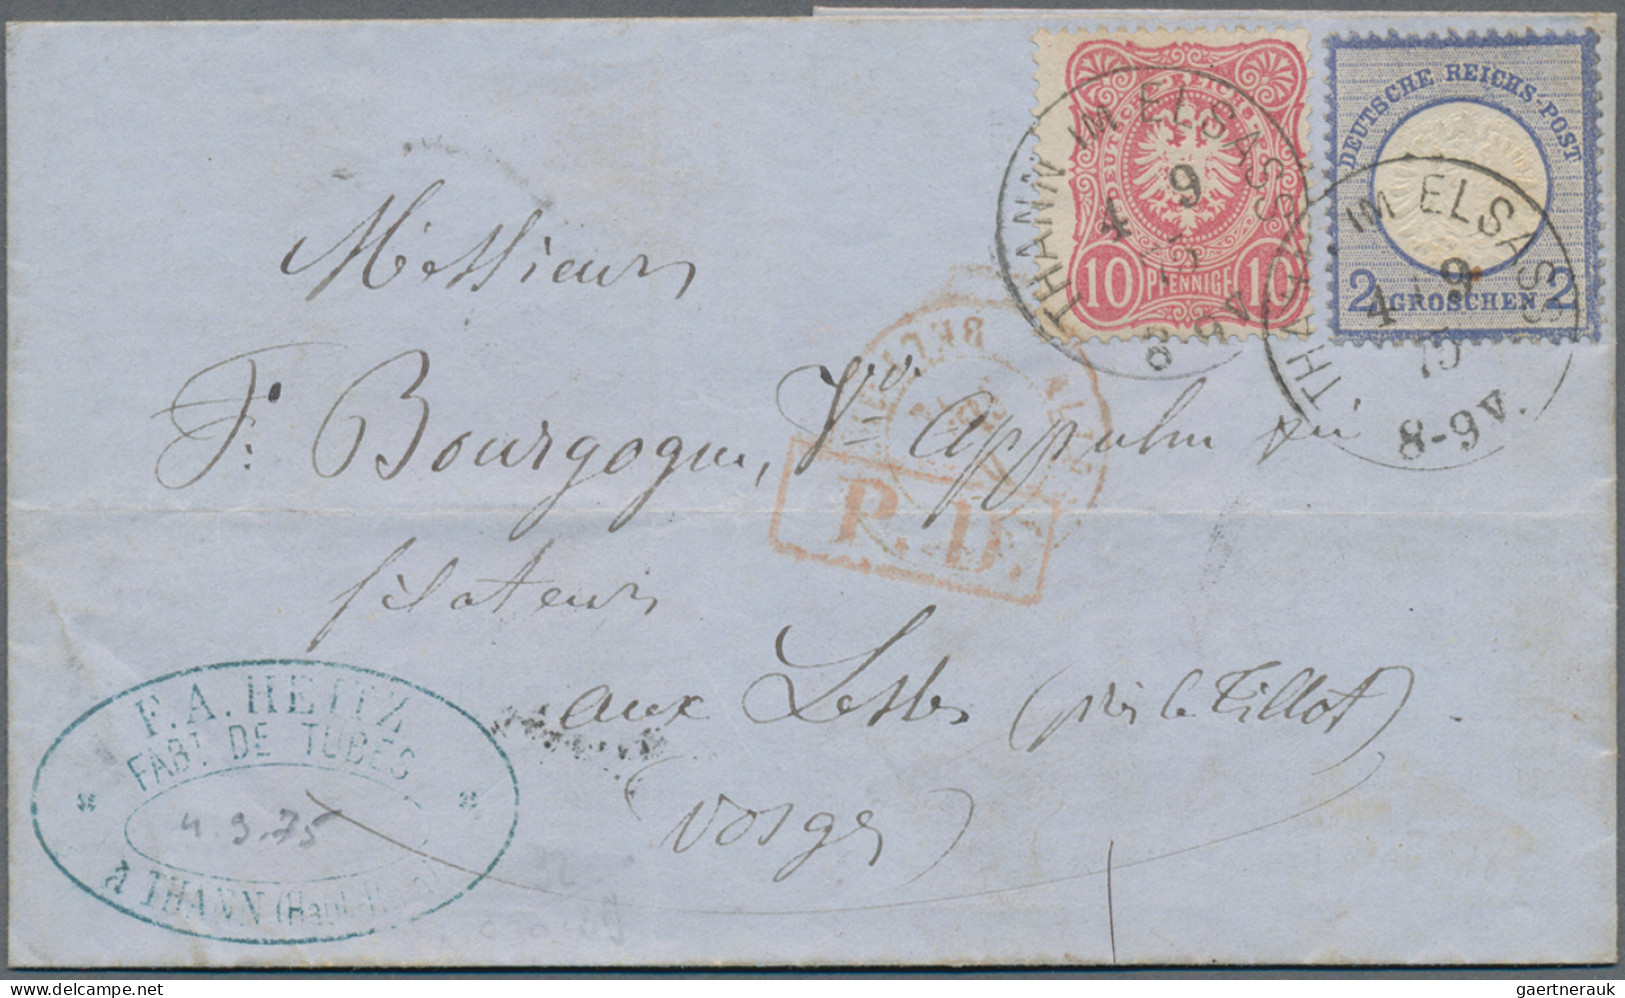 DEUTSCHE REICHS-POST
10 PFENNIGE 10
2 GROSCHEN 2
THANN IM ELSASS
4 9
75
8-9 V.
THANN IM ELSASS
4 9
75
8-9 V.
Messieurs
F: Bourgogne, Vve
filateurs
P.D.
aux (près le Tillot)
(Vosges)
F. A. HEITZ
FABT. DE TUBES
4.9.75
à THANN (Haut-Rhin)
gaertnerauk@delcampe.net